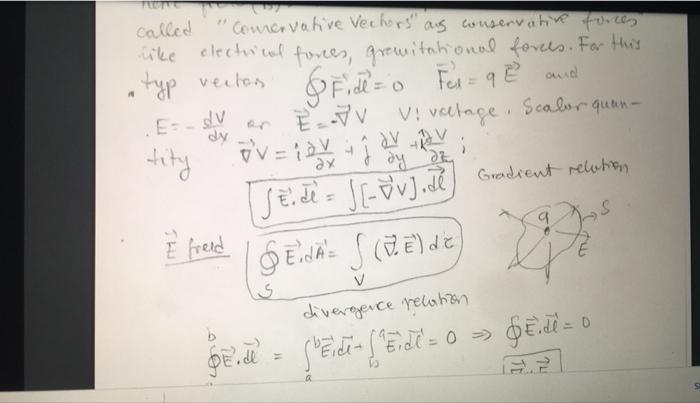 called "Conservative Vectors" as conservative forces
like electrical forces, gravitational forces. For this
typ vectors ∮F⃗.dl⃗ = 0 F⃗el = q E⃗ and
E = - dV/dx or E⃗ = -∇⃗V V: voltage. Scalar quan-
tity ∇⃗V = i ∂V/∂x + j ∂V/∂y + k ∂V/∂z ;
∫E⃗.dl⃗ = ∫[-∇⃗V].dl⃗ Gradient relation
E⃗ field ∮_S E⃗.dA⃗ = ∫_V (∇⃗.E⃗) dτ
q S E
divergence relation
∮E⃗.dl⃗ = ∫_a^b E⃗.dl⃗ + ∫_b^a E⃗.dl⃗ = 0 ⇒ ∮E⃗.dl⃗ = 0